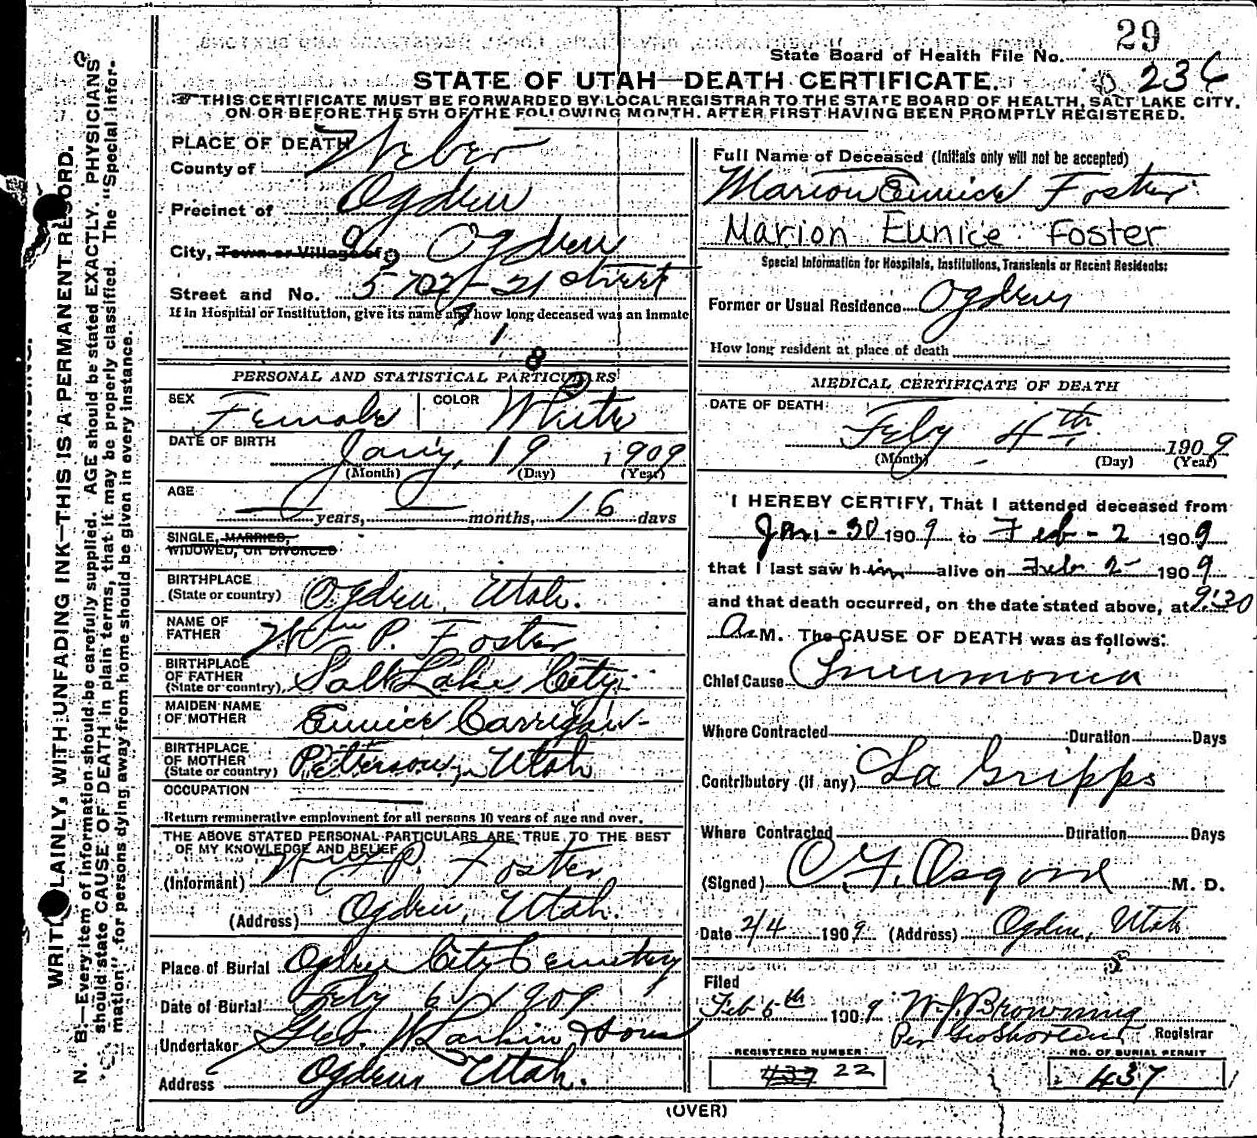 29
State Board of Health File No.
23 C
STATE OF UTAH—DEATH CERTIFICATE.
THIS CERTIFICATE MUST BE FORWARDED BY LOCAL REGISTRAR TO THE STATE BOARD OF HEALTH, SALT LAKE CITY,
ON OR BEFORE THE 5TH OF THE FOLLOWING MONTH. AFTER FIRST HAVING BEEN PROMPTLY REGISTERED.
WRITE PLAINLY, WITH UNFADING INK—THIS IS A PERMANENT RECORD.
N. B.—Every item of information should be carefully supplied. AGE should be stated EXACTLY. PHYSICIANS
should state CAUSE OF DEATH in plain terms, that it may be properly classified. The "Special Infor-
mation" for persons dying away from home should be given in every instance.
PLACE OF DEATH
County of Weber
Precinct of Ogden
City, Town or Village of Ogden
Street and No. 570 21 Street
If in Hospital or Institution, give its name and how long deceased was an inmate
1
8
PERSONAL AND STATISTICAL PARTICULARS
SEX Female COLOR White
DATE OF BIRTH Jany, 19 1909
(Month) (Day) (Year)
AGE — years, — months, 16 days
SINGLE, MARRIED,
WIDOWED, OR DIVORCED
BIRTHPLACE
(State or country) Ogden, Utah.
NAME OF
FATHER Wm P. Foster
BIRTHPLACE
OF FATHER
(State or country) Salt Lake City
MAIDEN NAME
OF MOTHER Eunice Carrigan
BIRTHPLACE
OF MOTHER
(State or country) Peterson, Utah
OCCUPATION
Return remunerative employment for all persons 10 years of age and over.
THE ABOVE STATED PERSONAL PARTICULARS ARE TRUE TO THE BEST
OF MY KNOWLEDGE AND BELIEF
(Informant) Wm P. Foster
(Address) Ogden, Utah.
Place of Burial Ogden City Cemetery
Date of Burial Feby 6 1909
Undertaker Geo. W. Larkin & Sons
Address Ogden Utah.
Full Name of Deceased (Initials only will not be accepted)
Marion Eunice Foster
Marion Eunice Foster
Special Information for Hospitals, Institutions, Transients or Recent Residents:
Former or Usual Residence Ogden
How long resident at place of death
MEDICAL CERTIFICATE OF DEATH
DATE OF DEATH
Feby 4th 1909
(Month) (Day) (Year)
I HEREBY CERTIFY, That I attended deceased from
Jan. - 30 1909 to Feb - 2 1909
that I last saw him alive on Feb 2 - 1909
and that death occurred, on the date stated above, at 9:30
A. M. The CAUSE OF DEATH was as follows:
Chief Cause Pneumonia
Where Contracted Duration Days
Contributory (if any) La Gripps
Where Contracted Duration Days
(Signed) O. F. Osgood M. D.
Date 2/4 1909 (Address) Ogden, Utah
Filed
Feb 6th 1909 W. J. Browning
Per Geo Shorten Registrar
REGISTERED NUMBER
437 22
NO. OF BURIAL PERMIT
437
(OVER)